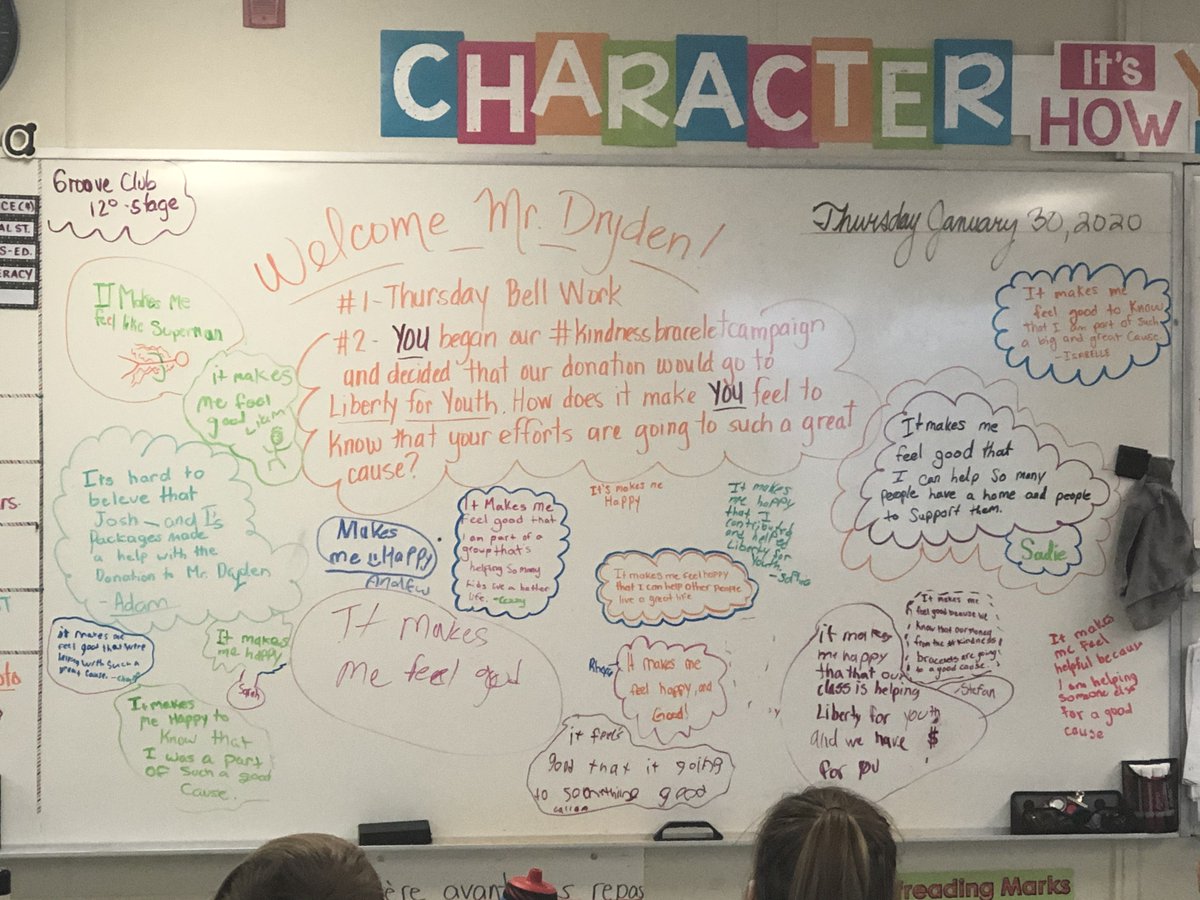 CHARACTER
It's
HOW
Y
a
Groove Club
12⁰-stage
CE(4)
AL ST.
S-ED.
ERACY
Welcome Mr. Dryden!
Thursday January 30, 2020
#1-Thursday Bell Work
#2- YOU began our #kindnessbraceletcampaign
and decided that our donation would go to
Liberty for Youth. How does it make YOU feel to
know that your efforts are going to such a great
cause?
It Makes Me
feel like Superman
it makes
me feel
good Liam
It makes me
feel good to know
that I am part of such
a big and great cause
-ISABELLE
It makes me
feel good that
I can help so many
people have a home and people
to support them.
Sadie
Its hard to
beleve that
Josh- and I's
Packages made
a help with the
Donation to Mr. Dryden
- Adam
Makes
me Happy
Andrew
It Makes me
Feel good that
I am part of a
group that's
helping so many
kids live a better
life.
It's makes me
Happy
It makes
me happy
that I
contributed
and helped
Liberty for
Youth.
-Sophie
It makes me feel happy
that I can help other people
live a great life
it makes me
feel good that we're
helping with such a
great cause.
It makes
me happy
Sarah
It makes
me feel good
It makes
me Happy to
know that
I was a part
OF such a good
cause.
Rhys
It makes me
feel happy, and
Good!
it feel's
good that it going
to something good
callan
it makes
me happy
that that our
class is helping
Liberty for youth
and we have $
for you
It makes me
feel good because we
know that our money
from the #kindness
bracelets are going
to a good cause.
-Stefan
It makes
me feel
helpful because
I am helping
someone else
for a good
cause
ère avant repas
reading Marks